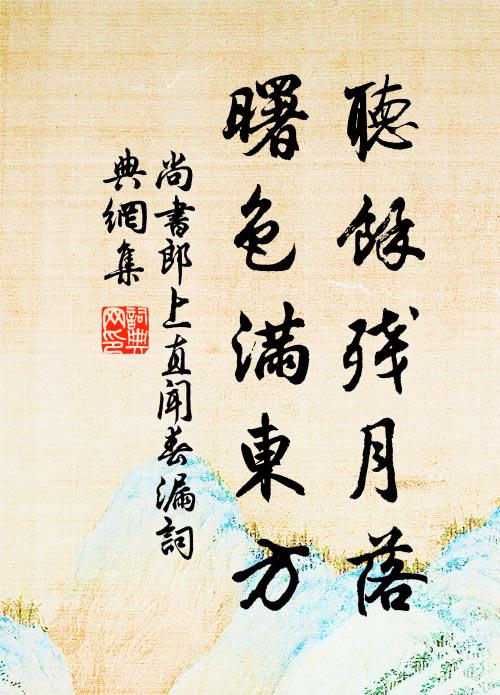 聽餘殘月落
曙色滿東方
尚書郎上直聞春漏詞
典網集
詞典網印